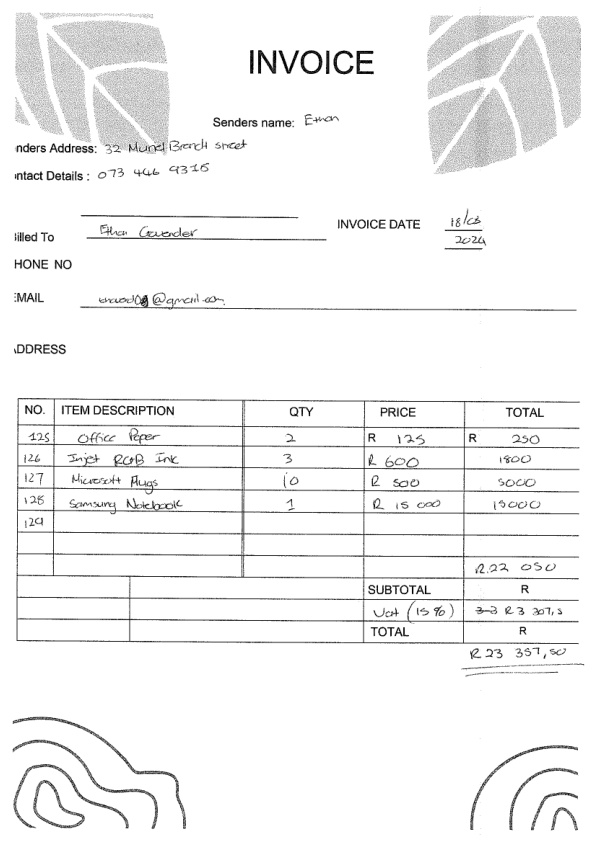 INVOICE
Senders name: Ethan
nders Address: 32 Muriel Branch street
ntact Details : 073 446 9315
INVOICE DATE 18/03
2024
illed To Ethan Govender
HONE NO
EMAIL @gmail.com
ADDRESS
NO. ITEM DESCRIPTION QTY PRICE TOTAL
125 Office Paper 2 R 125 R 250
126 Injet RGB Ink 3 R 600 1800
127 Microsoft Plugs 10 R 500 5000
128 Samsung Notebook 1 R 15 000 15000
129
R22 050
SUBTOTAL R
Vat (15%) 3 3 R3 307,5
TOTAL R
R 23 357,50